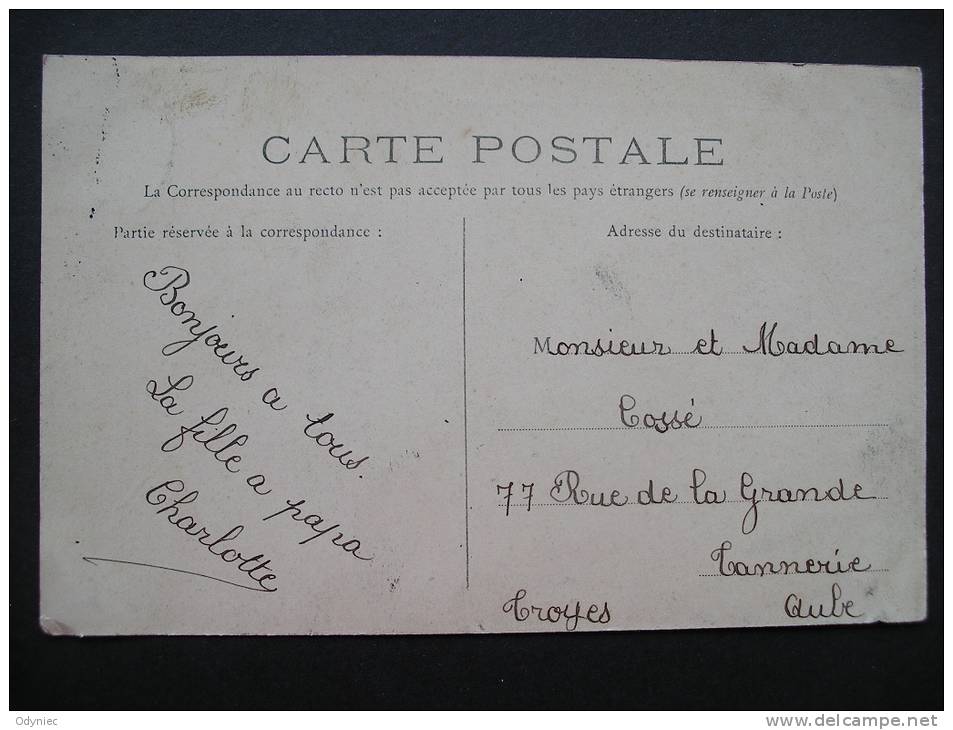 CARTE POSTALE
La Correspondance au recto n'est pas acceptée par tous les pays étrangers (se renseigner à la Poste)
Partie réservée à la correspondance :
Bonjours a tous.
La fille a papa
Charlotte
Adresse du destinataire :
Monsieur et Madame
Cossé
77 Rue de la Grande
Tannerie
Troyes Aube
Odyniec
www.delcampe.net